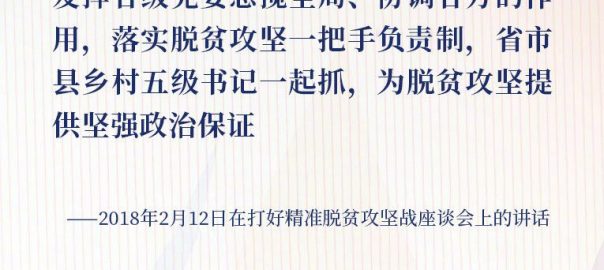 发挥各级党委总揽全局、协调各方的作
用，落实脱贫攻坚一把手负责制，省市
县乡村五级书记一起抓，为脱贫攻坚提
供坚强政治保证
——2018年2月12日在打好精准脱贫攻坚战座谈会上的讲话